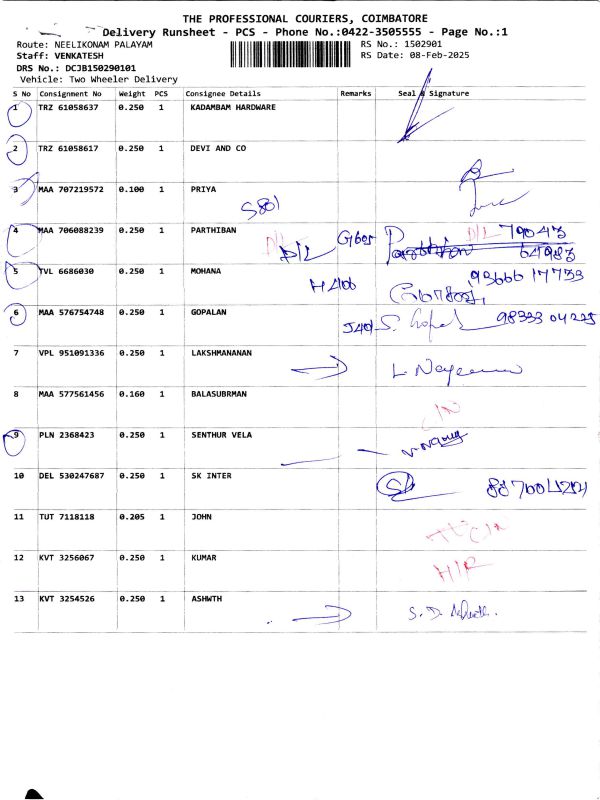 THE PROFESSIONAL COURIERS, COIMBATORE
Delivery Runsheet - PCS - Phone No.:0422-3505555 - Page No.:1
Route: NEELIKONAM PALAYAM RS No.: 1502901
Staff: VENKATESH RS Date: 08-Feb-2025
DRS No.: DCJB150290101
Vehicle: Two Wheeler Delivery
S No Consignment No Weight PCS Consignee Details Remarks Seal & Signature
1 TRZ 61058637 0.250 1 KADAMBAM HARDWARE
2 TRZ 61058617 0.250 1 DEVI AND CO
3 MAA 707219572 0.100 1 PRIYA
S801
4 MAA 706088239 0.250 1 PARTHIBAN D/L 79043
D/L 64983
5 TVL 6686030 0.250 1 MOHANA 93666 17733
H406
6 MAA 576754748 0.250 1 GOPALAN S. Gopal 98333 04225
7 VPL 951091336 0.250 1 LAKSHMANANAN
8 MAA 577561456 0.160 1 BALASUBRMAN
9 PLN 2368423 0.250 1 SENTHUR VELA
10 DEL 530247687 0.250 1 SK INTER
11 TUT 7118118 0.205 1 JOHN
12 KVT 3256067 0.250 1 KUMAR
13 KVT 3254526 0.250 1 ASHWTH